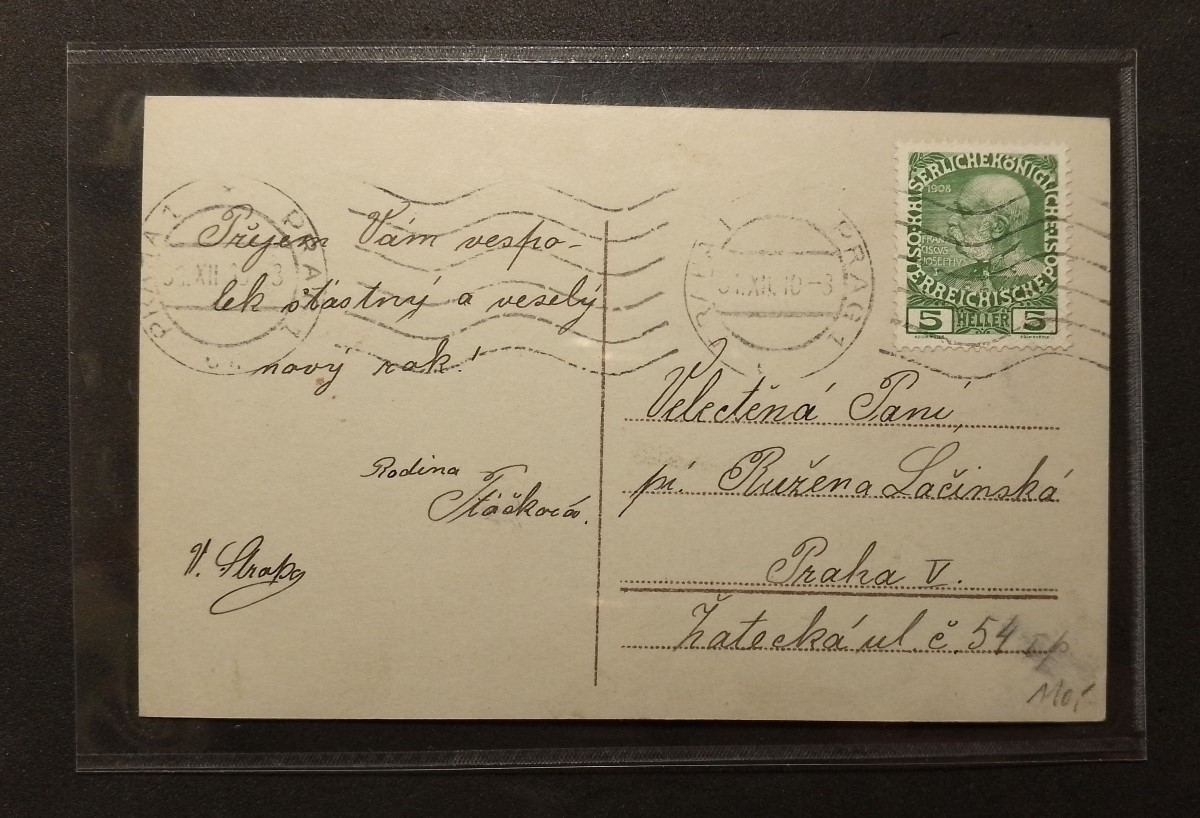 Přejem Vám vespo-
lek šťastný a veselý
nový rok!
Rodina
V. Strapg
PRAHA 1 PRAG 1
31.XII.10-3
PRAHA 1 PRAG 1
31.XII.10-3
KAISERLICHE KÖNIGLICHE ÖSTERREICHISCHE POST
1908
FRAN
CISCVS
IOSEPHVS
5 HELLER 5
Velectěná Paní,
pí. Růžena Lačinská
Praha V.
Žatecká ul. č. 54
110,-